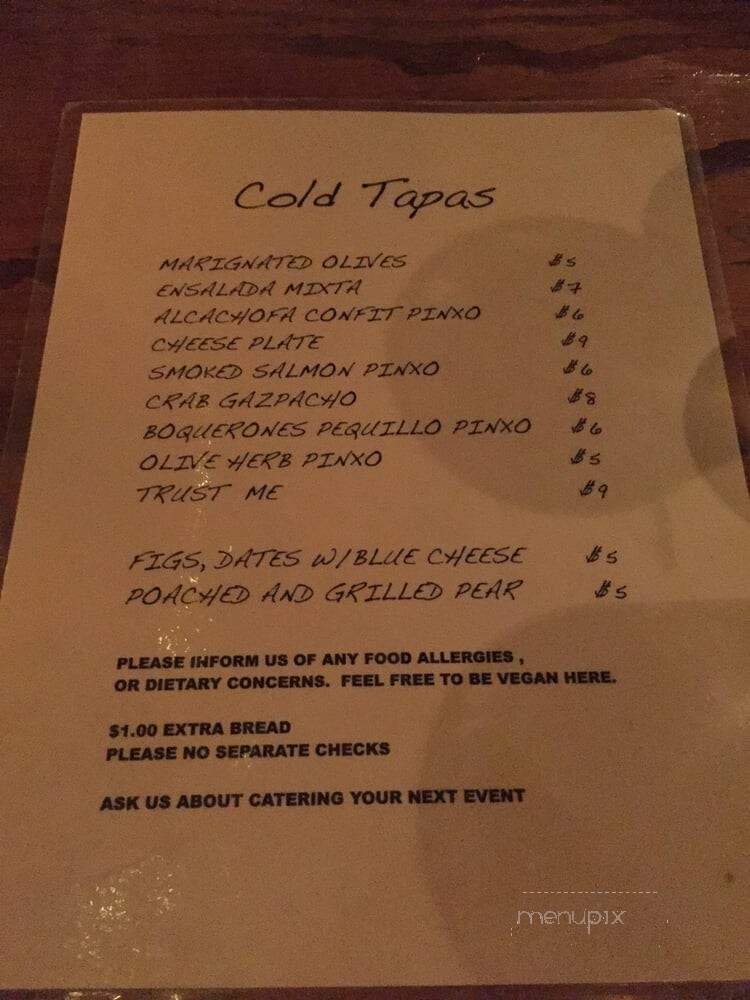 Cold Tapas
MARIGNATED OLIVES $5
ENSALADA MIXTA $7
ALCACHOFA CONFIT PINXO $6
CHEESE PLATE $9
SMOKED SALMON PINXO $6
CRAB GAZPACHO $8
BOQUERONES PEQUILLO PINXO $6
OLIVE HERB PINXO $5
TRUST ME $9
FIGS, DATES W/BLUE CHEESE $5
POACHED AND GRILLED PEAR $5
PLEASE INFORM US OF ANY FOOD ALLERGIES ,
OR DIETARY CONCERNS. FEEL FREE TO BE VEGAN HERE.
$1.00 EXTRA BREAD
PLEASE NO SEPARATE CHECKS
ASK US ABOUT CATERING YOUR NEXT EVENT
menupix